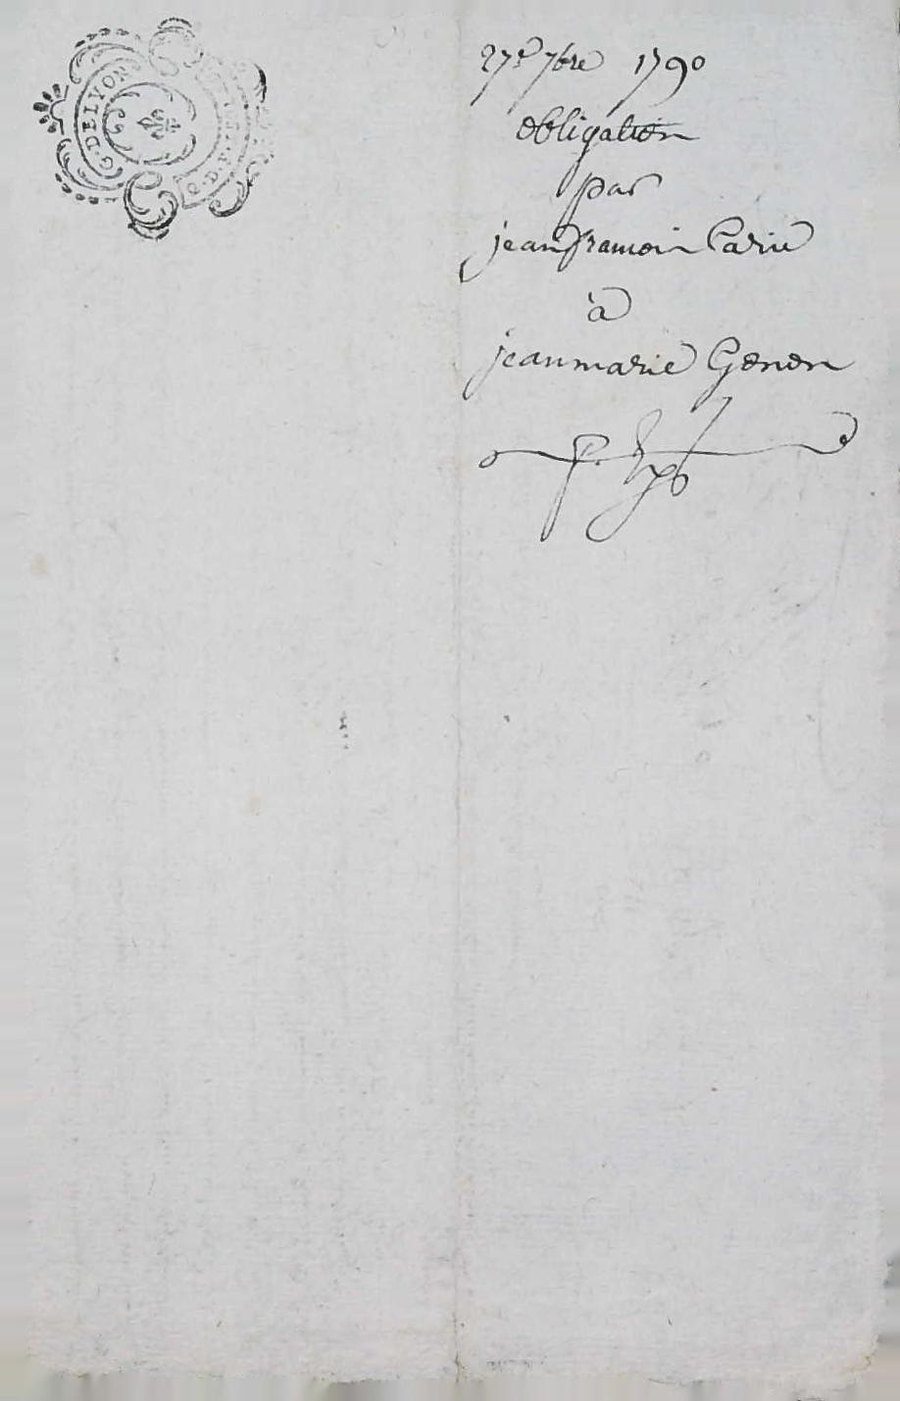 G. DE LYON
27e 7bre 1790
obligation
par
jean francois
à
jeanmarie Genon